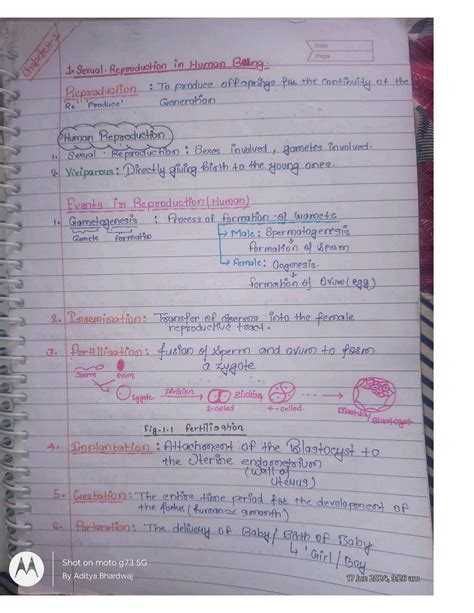 Chapter-1
Date
Page
1. Sexual Reproduction in Human Being:
Reproduction : To produce offsprings for the continuity of the
Re 'Produce' Generation
Human Reproduction
1. Sexual Reproduction : Sexes involved, gametes involved.
2. Viviparous : Directly giving birth to the young ones.
Events in Reproduction (Human)
1. Gametogenesis : Process of formation of Gamete
Gamete Formation
Male : Spermatogenesis
formation of Sperm
Female : Oogenesis.
formation of Ovum (egg)
2. Insemination : Transfer of sperms into the female
reproductive tract.
3. Fertilisation : fusion of sperm and ovum to form
a zygote
Sperm Ovum
Zygote division 2-celled 4-celled Blastocyst
Fig-1.1 Fertilisation
4. Implantation : Attachment of the Blastocyst to
the Uterine endometrium
(Wall of
Uterus)
5. Gestation : The entire time period for the development of
the foetus (human ≈ 9 month)
6. Parturation : The delivery of Baby / Birth of Baby
Girl / Boy
Shot on moto g73 5G
By Aditya Bhardwaj
17 Jun 2024, 9:25 am